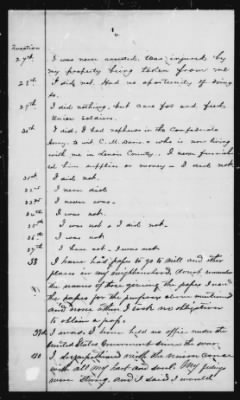 6
Question
27th. I was never arrested. Was injured by
my property being taken from me
28th. I did not. Had no oportunity of doing
so.
29th. I did nothing, but care for and feed
Union soldiers.
30th. I did. I had nephews in the Confederate
Army. to wit C. M. who is now living
with me in County. I never furnished
him supplies or money I did not.
31st. I did not.
32nd I never did
33rd I never was.
34th I was not.
35th I was not & I did not.
36th I was not
37th I have not. I was not.
38 I have had papers to go to mill and other
places in my neighborhood, do not remember
the names of those giving the papers I used
the papers for the purposes above mentioned
and none other I took no obligation
to obtain a pass.
39 I was. I have held no office under the
United States Government since the war
40 I sympathised with the union cause
with all my heart and soul. My feelings
were strong, and I said I would